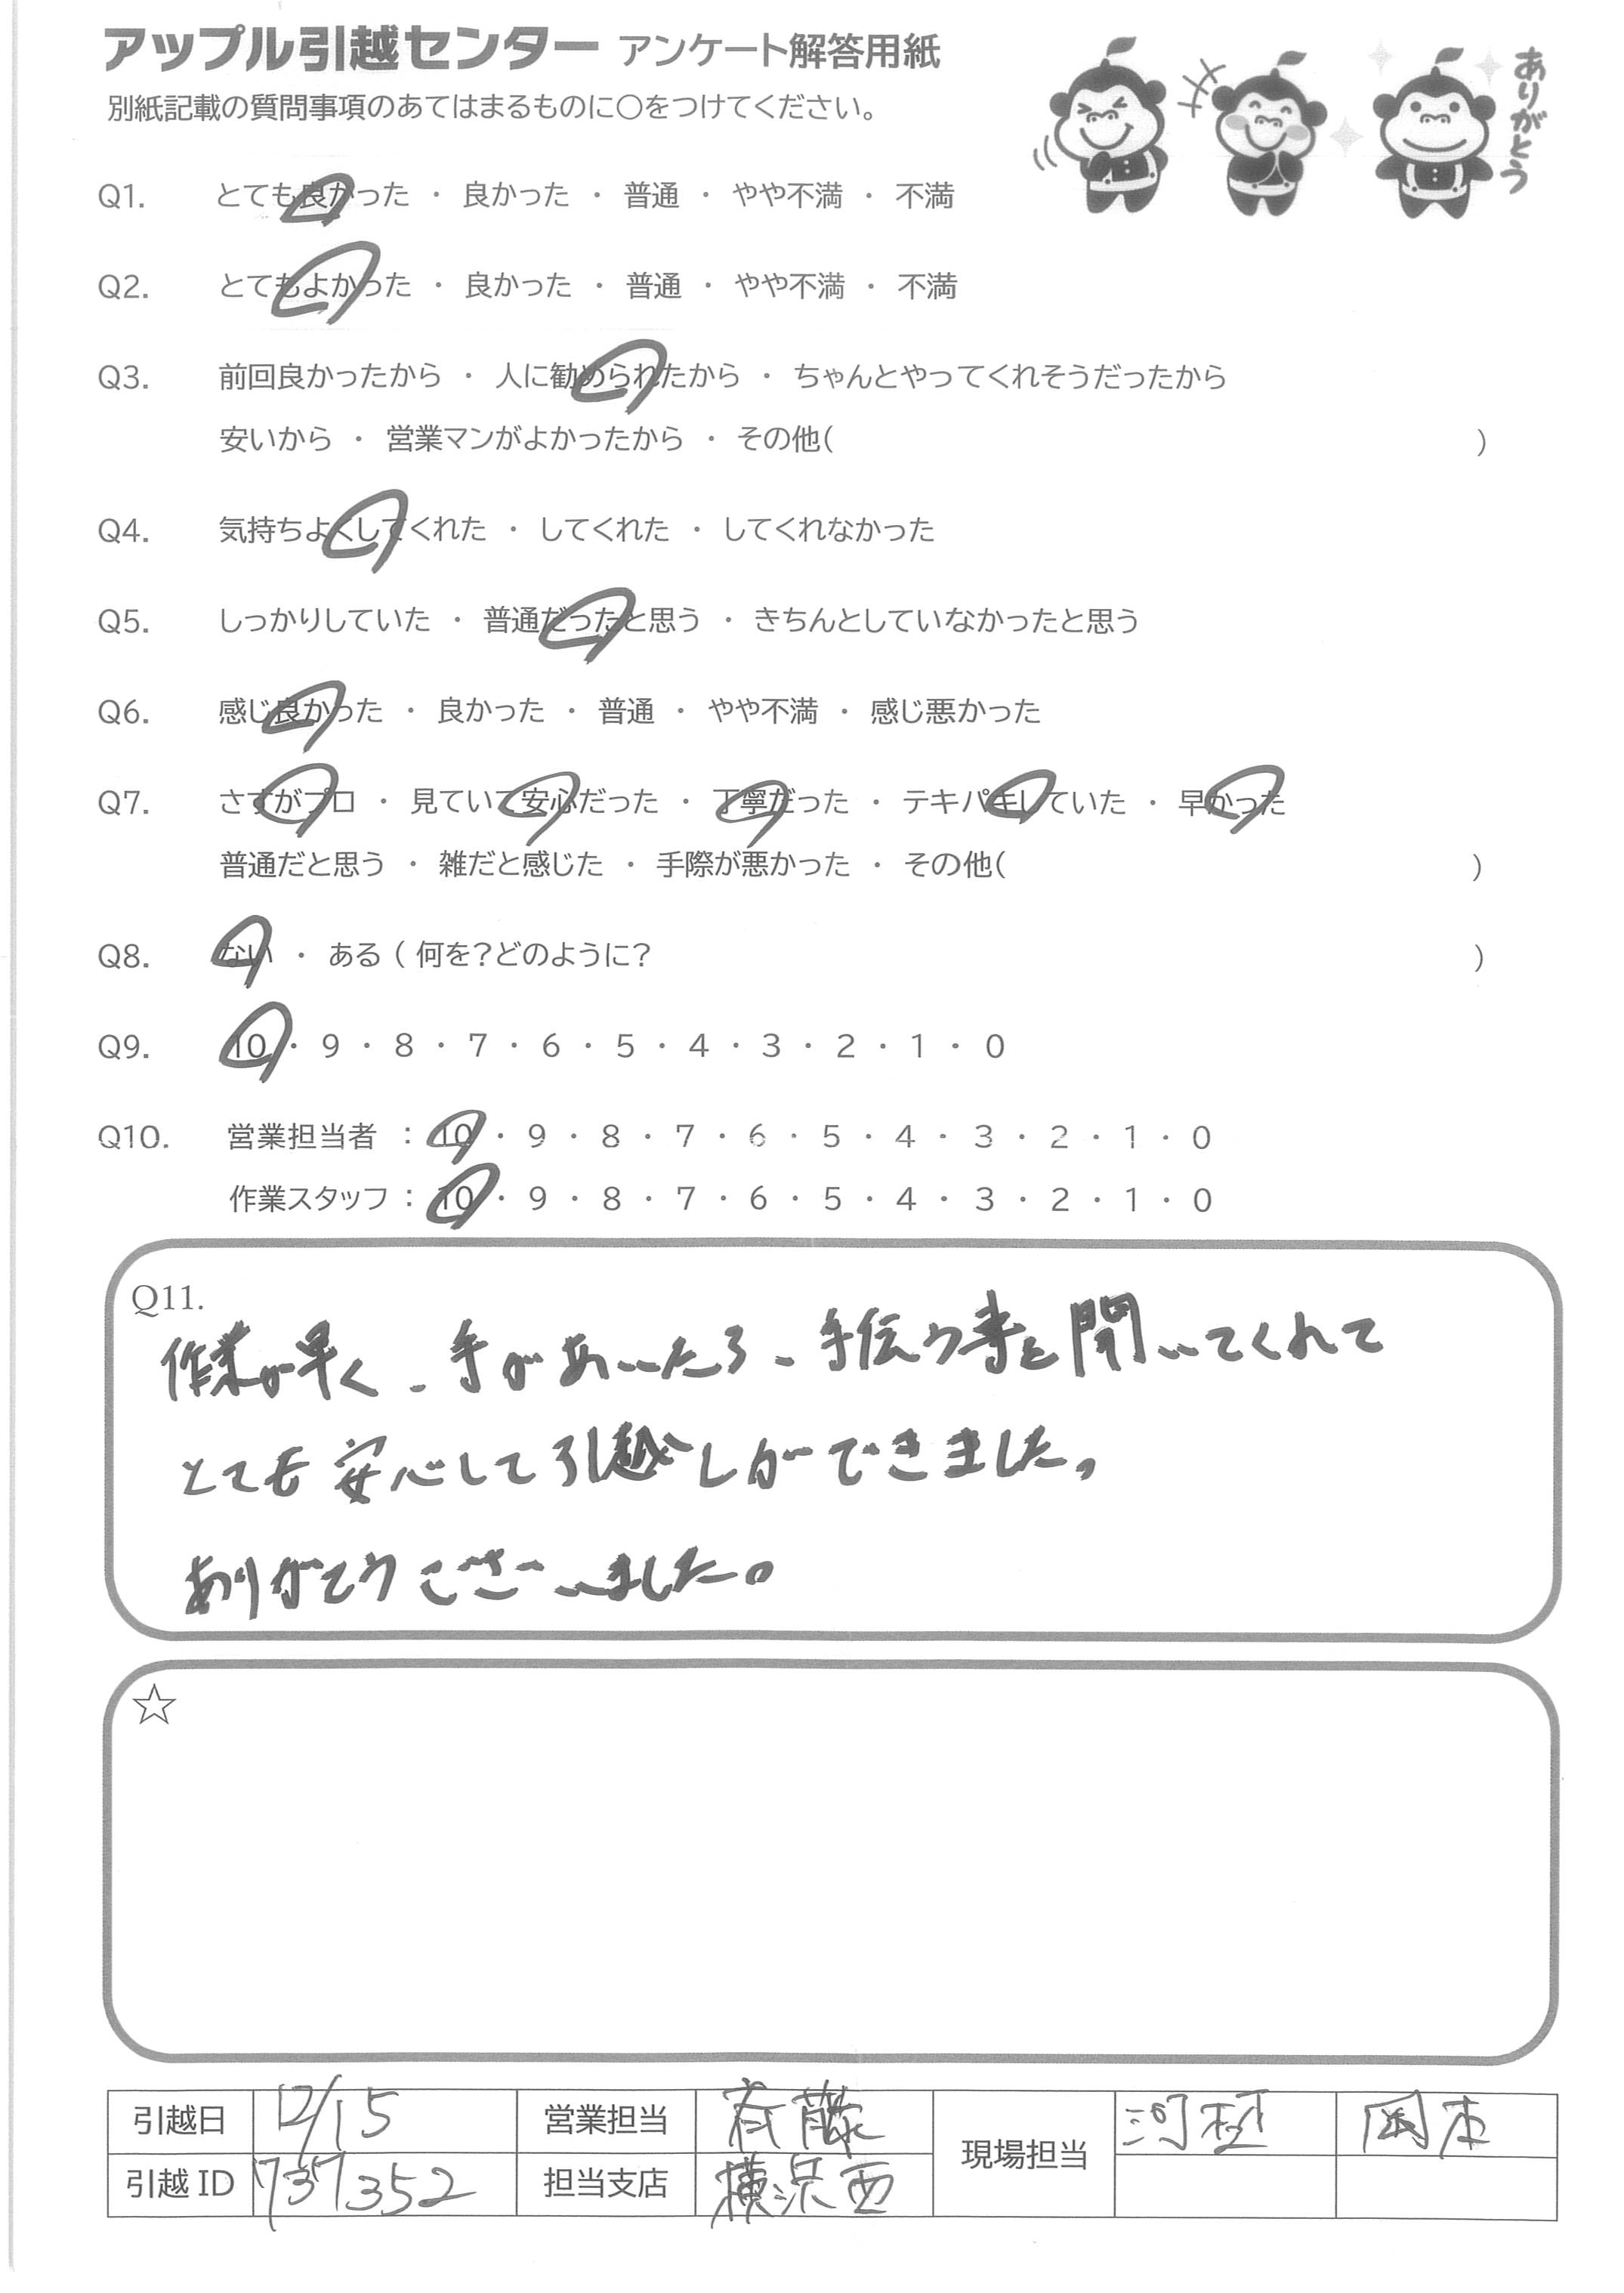 アップル引越センター アンケート解答用紙
別紙記載の質問事項のあてはまるものに〇をつけてください。
ありがとう
Q1. とても良かった ・ 良かった ・ 普通 ・ やや不満 ・ 不満
Q2. とてもよかった ・ 良かった ・ 普通 ・ やや不満 ・ 不満
Q3. 前回良かったから ・ 人に勧められたから ・ ちゃんとやってくれそうだったから
安いから ・ 営業マンがよかったから ・ その他( )
Q4. 気持ちよくしてくれた ・ してくれた ・ してくれなかった
Q5. しっかりしていた ・ 普通だったと思う ・ きちんとしていなかったと思う
Q6. 感じ良かった ・ 良かった ・ 普通 ・ やや不満 ・ 感じ悪かった
Q7. さすがプロ ・ 見ていて安心だった ・ 丁寧だった ・ テキパキしていた ・ 早かった
普通だと思う ・ 雑だと感じた ・ 手際が悪かった ・ その他( )
Q8. ない ・ ある ( 何を？どのように？ )
Q9. 10 ・ 9 ・ 8 ・ 7 ・ 6 ・ 5 ・ 4 ・ 3 ・ 2 ・ 1 ・ 0
Q10. 営業担当者 ： 10 ・ 9 ・ 8 ・ 7 ・ 6 ・ 5 ・ 4 ・ 3 ・ 2 ・ 1 ・ 0
作業スタッフ ： 10 ・ 9 ・ 8 ・ 7 ・ 6 ・ 5 ・ 4 ・ 3 ・ 2 ・ 1 ・ 0
Q11.
作業が早く、手があいたら、手伝う事を聞いてくれて
とても安心して引越しができました。
ありがとうございました。
☆
引越日 12/15 営業担当 斉藤 現場担当 岡本
引越 ID 737352 担当支店 横浜西